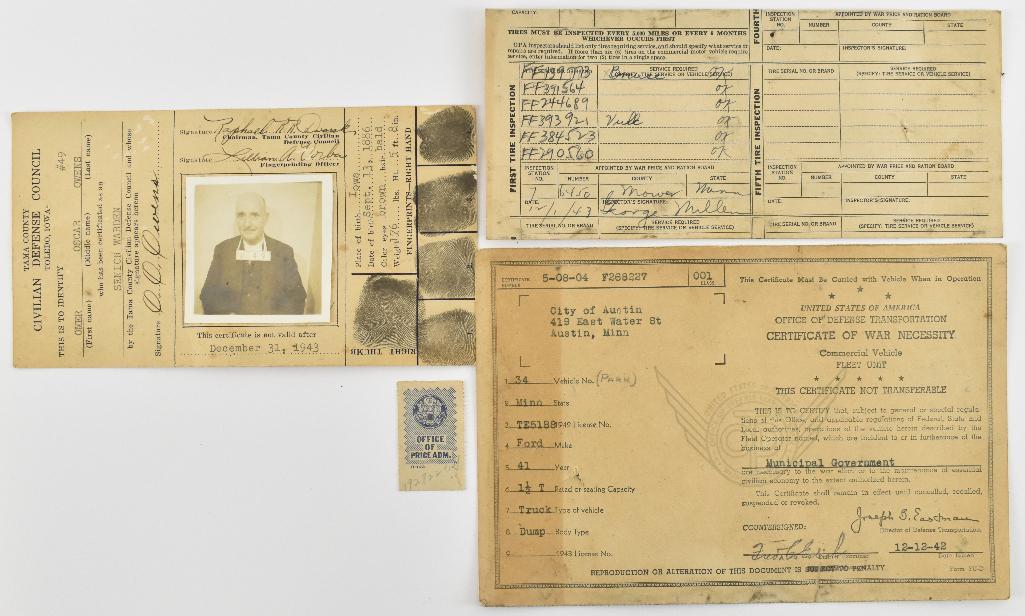 TAMA COUNTY
CIVILIAN DEFENSE COUNCIL
TOLEDO, IOWA
THIS IS TO IDENTIFY #49
OMER OSCAR OWENS
(First name) (Middle name) (Last name)
who has been certificated as an
SENIOR WARDEN
by the Tama County Civilian Defense Council and whose
signature appears hereon
Signature O. O. Owens
Signature
Chairman, Tama County Civilian
Defense Council
Signature
Fingerprinting Officer
This certificate is not valid after
December 31, 1943
Place of birth Iowa
Date of birth Sept. 13, 1886
Color eyes brown hair bald
Weight 176 lbs. Ht. 5 ft. 8 in.
FINGERPRINTS—RIGHT HAND
RIGHT THUMB
OFFICE
OF
PRICE ADM.
CAPACITY:
TIRES MUST BE INSPECTED EVERY 5,000 MILES OR EVERY 6 MONTHS
WHICHEVER OCCURS FIRST
OPA inspectors should not only tires requiring service, and should specify what service or
repairs are required. If more than six (6) tires on the commercial motor vehicle require
service, enter information for two (2) tires in a single space.
FIRST TIRE INSPECTION
SERVICE REQUIRED
(SPECIFY: TIRE SERVICE OR VEHICLE SERVICE)
FF391564 OK
FF244689 OK
FF393921 OK
FF384523 OK
FF290560 OK
INSPECTION STATION NO. APPOINTED BY WAR PRICE AND RATION BOARD
NUMBER COUNTY STATE
7 Mower Minn
DATE: INSPECTOR'S SIGNATURE:
/1/43 George Miller
TIRE SERIAL NO. OR BRAND SERVICE REQUIRED
(SPECIFY: TIRE SERVICE OR VEHICLE SERVICE)
FOURTH
INSPECTION STATION NO. APPOINTED BY WAR PRICE AND RATION BOARD
NUMBER COUNTY STATE
DATE: INSPECTOR'S SIGNATURE:
FIFTH TIRE INSPECTION
TIRE SERIAL NO. OR BRAND SERVICE REQUIRED
(SPECIFY: TIRE SERVICE OR VEHICLE SERVICE)
INSPECTION STATION NO. APPOINTED BY WAR PRICE AND RATION BOARD
NUMBER COUNTY STATE
DATE: INSPECTOR'S SIGNATURE:
TIRE SERIAL NO. OR BRAND SERVICE REQUIRED
(SPECIFY: TIRE SERVICE OR VEHICLE SERVICE)
CERTIFICATE NUMBER 5-08-04 F268227 001 CLASS
City of Austin
419 East Water St
Austin, Minn
1 34 Vehicle No. (Park)
2 Minn State
3 TE5188 1942 License No.
4 Ford Make
5 41 Year
6 1½ T Rated or seating Capacity
7 Truck Type of vehicle
8 Dump Body Type
9 1943 License No.
This Certificate Must Be Carried with Vehicle When in Operation
UNITED STATES OF AMERICA
OFFICE OF DEFENSE TRANSPORTATION
CERTIFICATE OF WAR NECESSITY
Commercial Vehicle
FLEET UNIT
THIS CERTIFICATE NOT TRANSFERABLE
THIS IS TO CERTIFY that, subject to general or special regula-
tions of this Office, and applicable regulations of Federal, State and
Local authorities, operations of the vehicle herein described by the
Fleet Operator named, which are incident to or in furtherance of the
business of
Municipal Government
are necessary to the war effort or to the maintenance of essential
civilian economy to the extent authorized herein.
This Certificate shall remain in effect until cancelled, recalled,
suspended or revoked.
Joseph B. Eastman
COUNTERSIGNED: Director of Defense Transportation
12-12-42
Date Issued
REPRODUCTION OR ALTERATION OF THIS DOCUMENT IS SUBJECT TO PENALTY